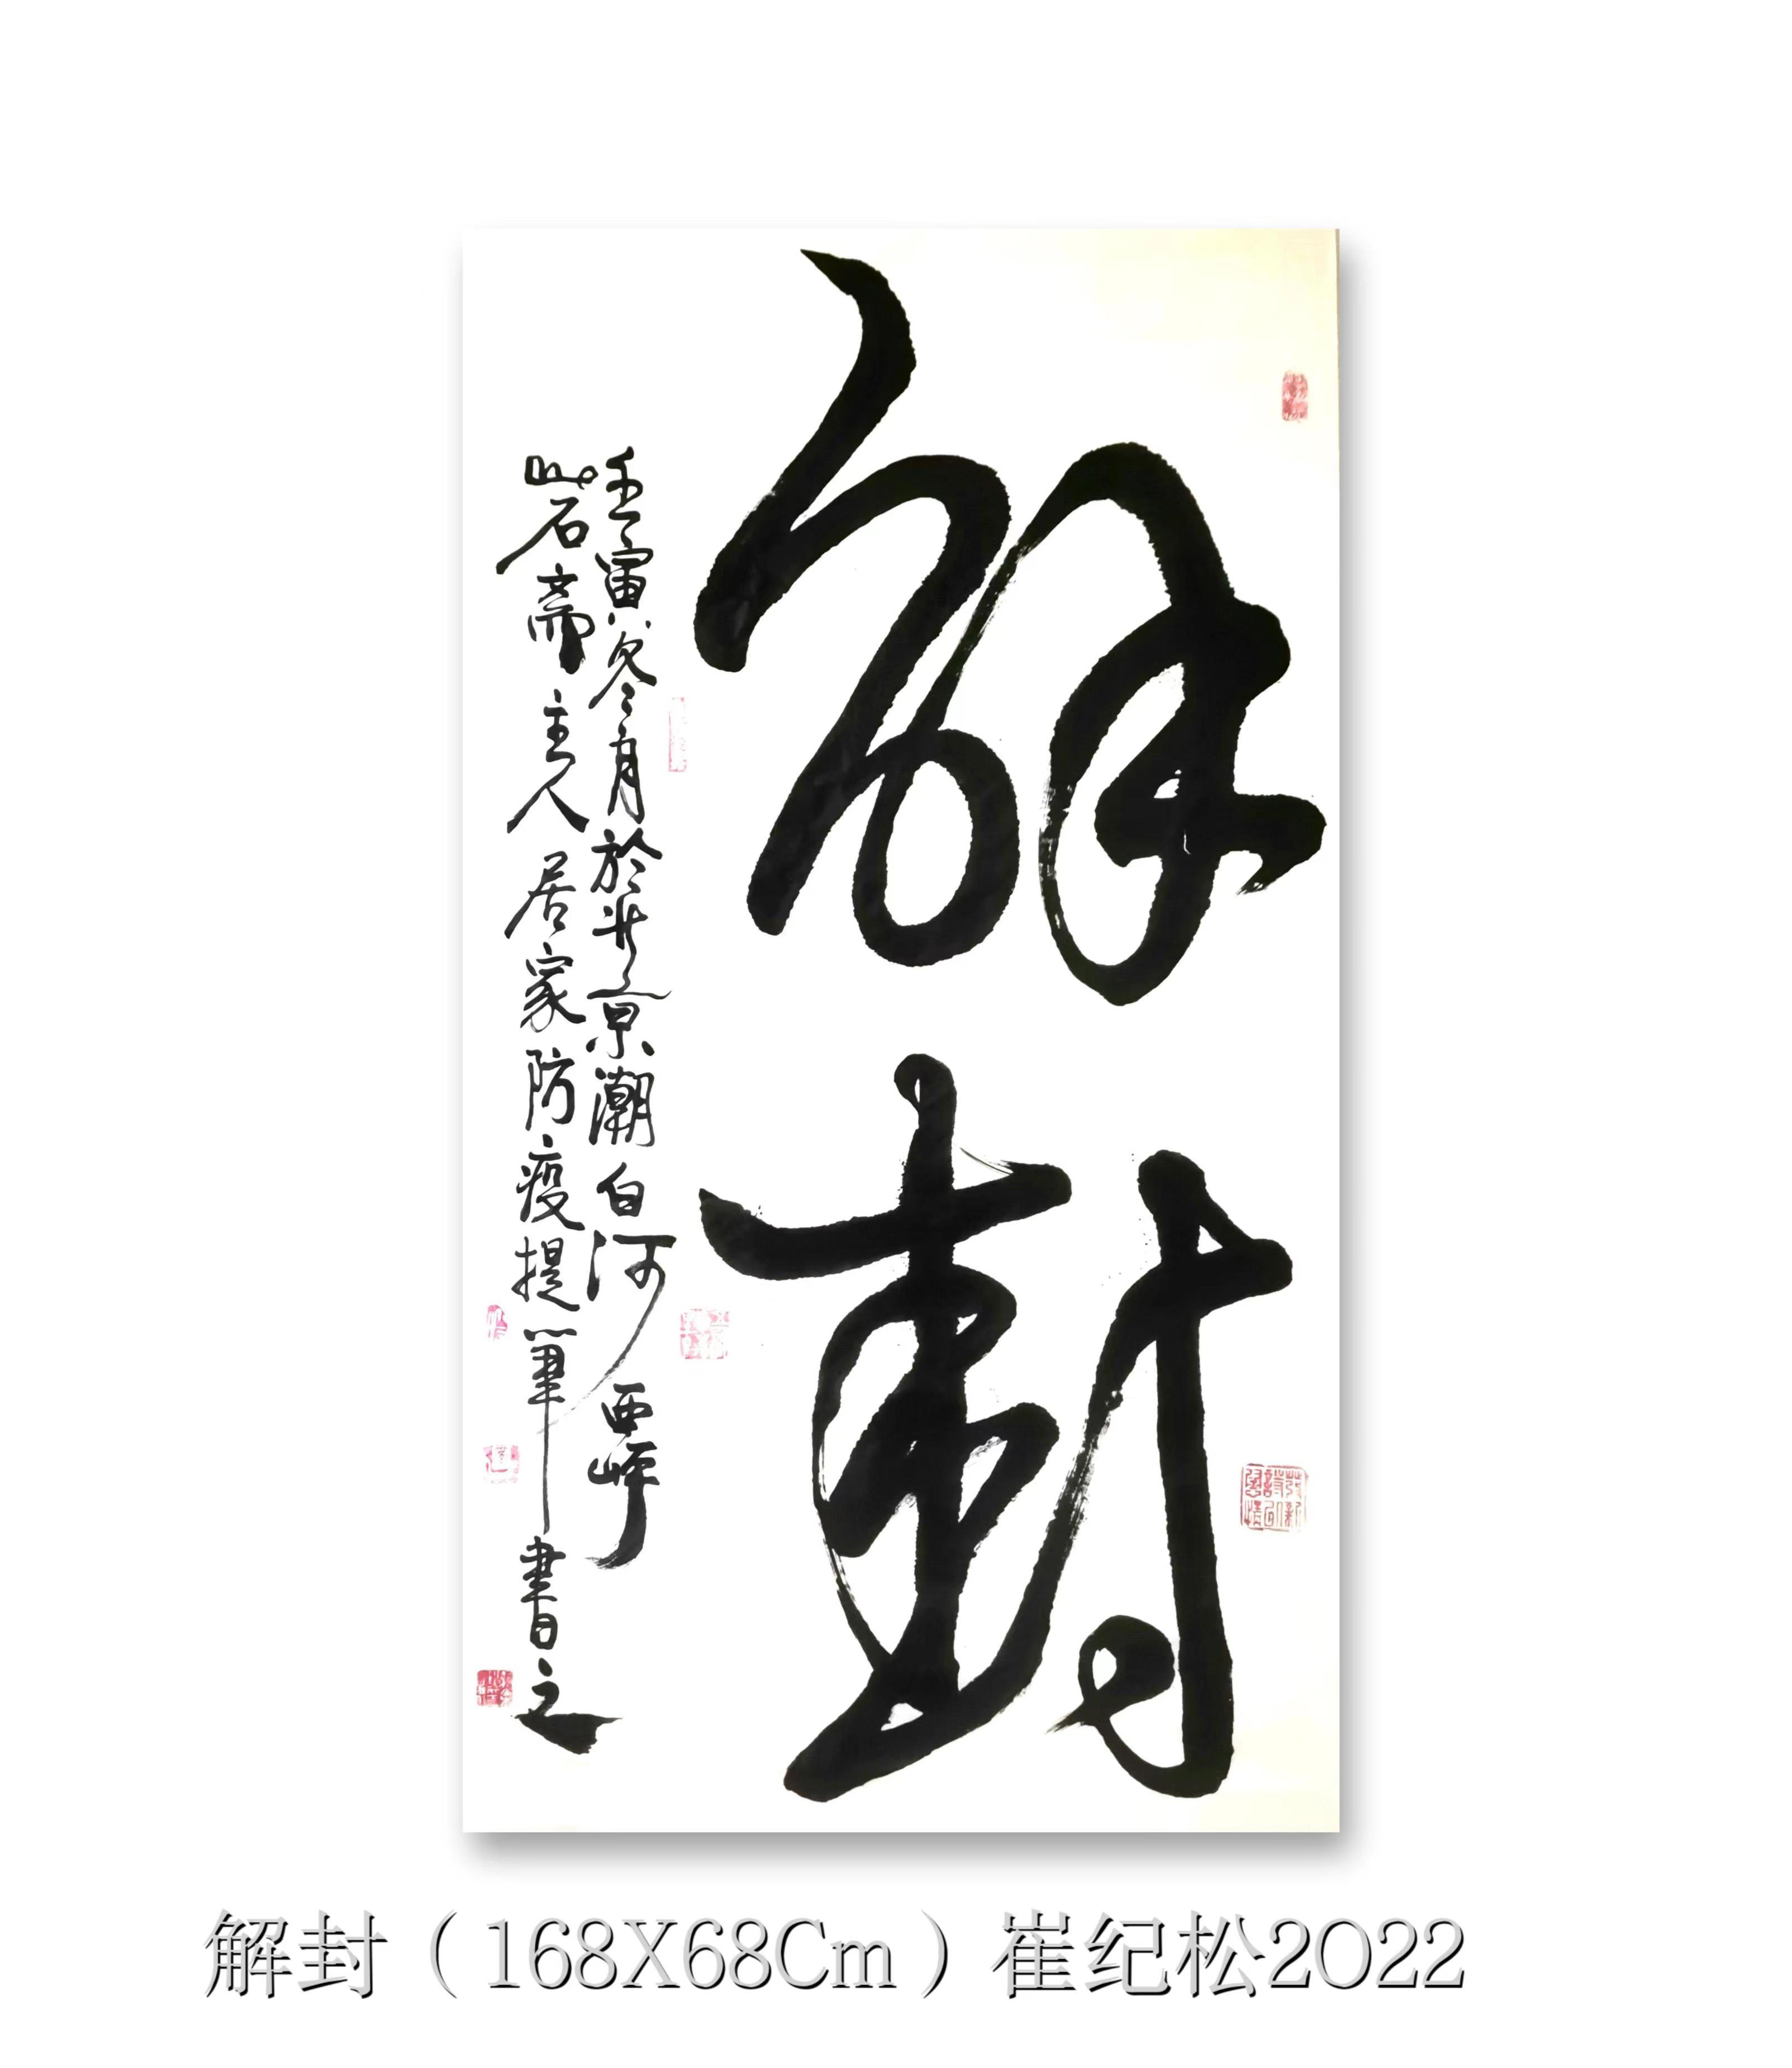 解封
壬寅冬月於北京潮白河西岸
岩石斋主人居家防疫提筆書之
解封（168X68Cm）崔纪松2022